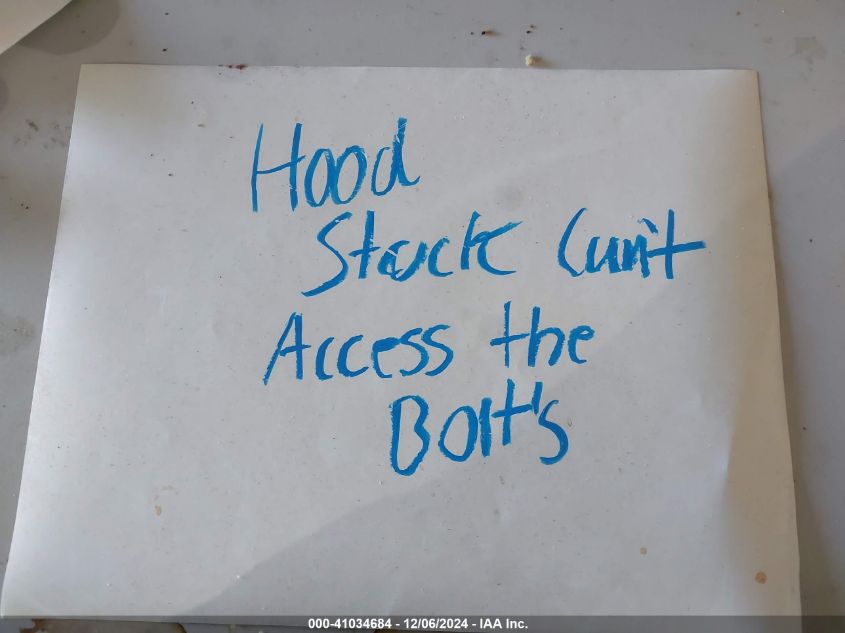 Hood
Stuck Can't
Access the
Bolt's
000-41034684 - 12/06/2024 - IAA Inc.